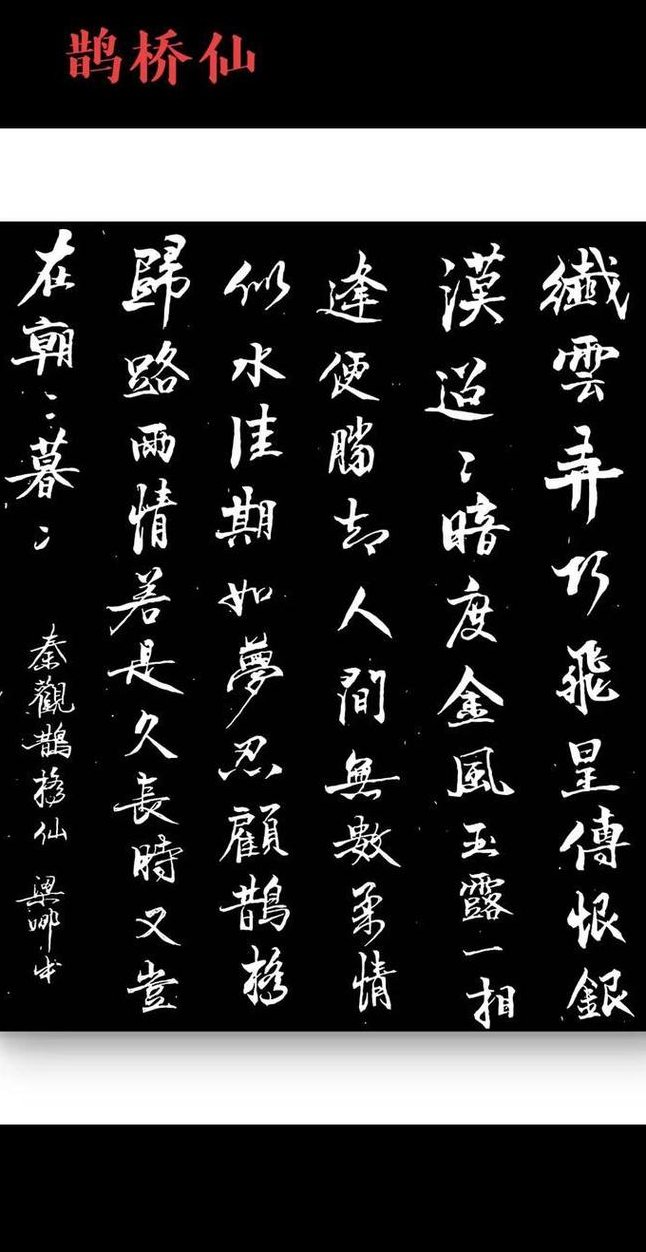 鹊桥仙
纖雲弄巧飛星傳恨銀
漢迢〻暗度金風玉露一相
逢便勝却人間無數柔情
似水佳期如夢忍顧鵲橋
歸路兩情若是久長時又豈
在朝〻暮〻
秦觀鵲橋仙 梁娜书